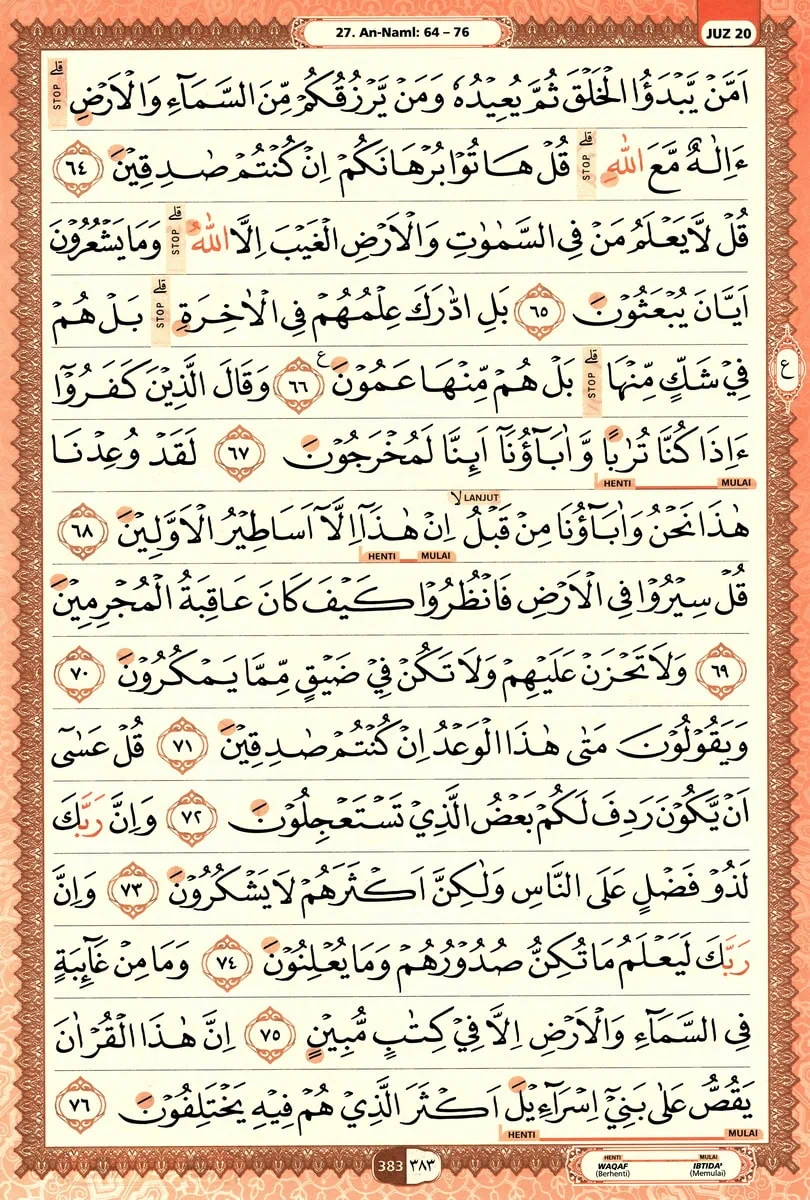 27. An-Naml: 64 – 76
JUZ 20
اَمَّنْ يَّبْدَؤُا الْخَلْقَ ثُمَّ يُعِيْدُهٗ وَمَنْ يَّرْزُقُكُمْ مِّنَ السَّمَاۤءِ وَالْاَرْضِۗ STOP
ءَاِلٰهٌ مَّعَ اللّٰهِ ۗ STOP قُلْ هَاتُوْا بُرْهَانَكُمْ اِنْ كُنْتُمْ صٰدِقِيْنَ ٦٤
قُلْ لَّا يَعْلَمُ مَنْ فِى السَّمٰوٰتِ وَالْاَرْضِ الْغَيْبَ اِلَّا اللّٰهُ ۗ STOP وَمَا يَشْعُرُوْنَ
اَيَّانَ يُبْعَثُوْنَ ٦٥ بَلِ ادّٰرَكَ عِلْمُهُمْ فِى الْاٰخِرَةِ ۗ STOP بَلْ هُمْ
فِيْ شَكٍّ مِّنْهَا ۗ STOP بَلْ هُمْ مِّنْهَا عَمُوْنَ ࣖ ٦٦ وَقَالَ الَّذِيْنَ كَفَرُوْٓا
ع
ءَاِذَا كُنَّا تُرٰبًا وَّاٰبَاۤؤُنَآ اَىِٕنَّا لَمُخْرَجُوْنَ ٦٧ لَقَدْ وُعِدْنَا
HENTI MULAI
LANJUT
هٰذَا نَحْنُ وَاٰبَاۤؤُنَا مِنْ قَبْلُ ۙ اِنْ هٰذَآ اِلَّآ اَسَاطِيْرُ الْاَوَّلِيْنَ ٦٨
HENTI MULAI
قُلْ سِيْرُوْا فِى الْاَرْضِ فَانْظُرُوْا كَيْفَ كَانَ عَاقِبَةُ الْمُجْرِمِيْنَ
٦٩ وَلَا تَحْزَنْ عَلَيْهِمْ وَلَا تَكُنْ فِيْ ضَيْقٍ مِّمَّا يَمْكُرُوْنَ ٧٠
وَيَقُوْلُوْنَ مَتٰى هٰذَا الْوَعْدُ اِنْ كُنْتُمْ صٰدِقِيْنَ ٧١ قُلْ عَسٰٓى
اَنْ يَّكُوْنَ رَدِفَ لَكُمْ بَعْضُ الَّذِيْ تَسْتَعْجِلُوْنَ ٧٢ وَاِنَّ رَبَّكَ
لَذُوْ فَضْلٍ عَلَى النَّاسِ وَلٰكِنَّ اَكْثَرَهُمْ لَا يَشْكُرُوْنَ ٧٣ وَاِنَّ
رَبَّكَ لَيَعْلَمُ مَا تُكِنُّ صُدُوْرُهُمْ وَمَا يُعْلِنُوْنَ ٧٤ وَمَا مِنْ غَاۤىِٕبَةٍ
فِى السَّمَاۤءِ وَالْاَرْضِ اِلَّا فِيْ كِتٰبٍ مُّبِيْنٍ ٧٥ اِنَّ هٰذَا الْقُرْاٰنَ
يَقُصُّ عَلٰى بَنِيْٓ اِسْرَاۤءِيْلَ اَكْثَرَ الَّذِيْ هُمْ فِيْهِ يَخْتَلِفُوْنَ ٧٦
HENTI MULAI
383 ٣٨٣
HENTI MULAI
WAQAF IBTIDA'
(Berhenti) (Memulai)